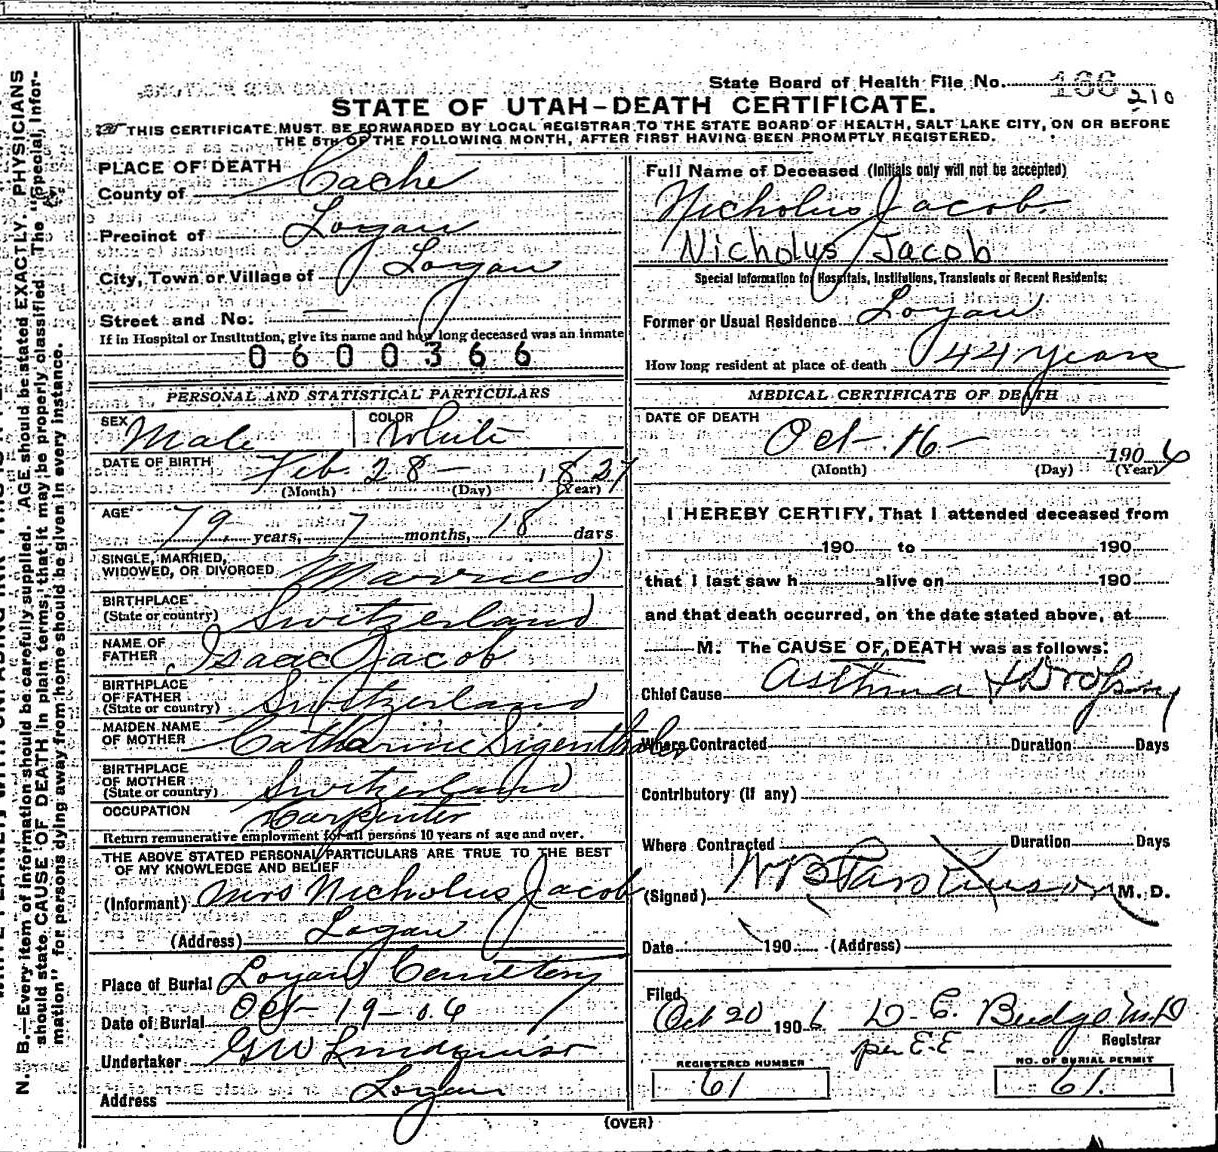 State Board of Health File No. 166
210
STATE OF UTAH-DEATH CERTIFICATE.
THIS CERTIFICATE MUST BE FORWARDED BY LOCAL REGISTRAR TO THE STATE BOARD OF HEALTH, SALT LAKE CITY, ON OR BEFORE
THE 5TH OF THE FOLLOWING MONTH, AFTER FIRST HAVING BEEN PROMPTLY REGISTERED.
PLACE OF DEATH
County of Cache
Precinct of Logan
City, Town or Village of Logan
Street and No. —
If in Hospital or Institution, give its name and how long deceased was an inmate
0600366
Full Name of Deceased (Initials only will not be accepted)
Nicholus Jacob.
Nicholus Jacob
Special Information for Hospitals, Institutions, Transients or Recent Residents:
Former or Usual Residence Logan
How long resident at place of death 44 years
PERSONAL AND STATISTICAL PARTICULARS
SEX Male COLOR White
DATE OF BIRTH Feb. 28 — 1827
(Month) (Day) (Year)
AGE 79 years, 7 months, 18 days
SINGLE, MARRIED,
WIDOWED, OR DIVORCED Married
BIRTHPLACE
(State or country) Switzerland
NAME OF
FATHER Isaac Jacob
BIRTHPLACE
OF FATHER
(State or country) Switzerland
MAIDEN NAME
OF MOTHER Catharine Sigenthaler
BIRTHPLACE
OF MOTHER
(State or country) Switzerland
OCCUPATION Carpenter
Return remunerative employment for all persons 10 years of age and over.
THE ABOVE STATED PERSONAL PARTICULARS ARE TRUE TO THE BEST
OF MY KNOWLEDGE AND BELIEF
(Informant) Mrs Nicholus Jacob
(Address) Logan
Place of Burial Logan Cemetery
Date of Burial Oct-19-06
Undertaker GW Lindquist
Address Logan
MEDICAL CERTIFICATE OF DEATH
DATE OF DEATH
Oct-16- 1906
(Month) (Day) (Year)
I HEREBY CERTIFY, That I attended deceased from
190 to 190
that I last saw h alive on 190
and that death occurred, on the date stated above, at
M. The CAUSE OF DEATH was as follows:
Chief Cause Asthma & Dropsy
Where Contracted Duration Days
Contributory (if any)
Where Contracted Duration Days
(Signed) W B Parkinson M. D.
Date 190 (Address)
Filed
Oct 20 1906 D. C. Budge M.D
per E.E. Registrar
REGISTERED NUMBER
61
NO. OF BURIAL PERMIT
61.
(OVER)
N. B.—Every item of information should be carefully supplied. AGE should be stated EXACTLY. PHYSICIANS
should state CAUSE OF DEATH in plain terms, that it may be properly classified. The "Special Infor-
mation" for persons dying away from home should be given in every instance.